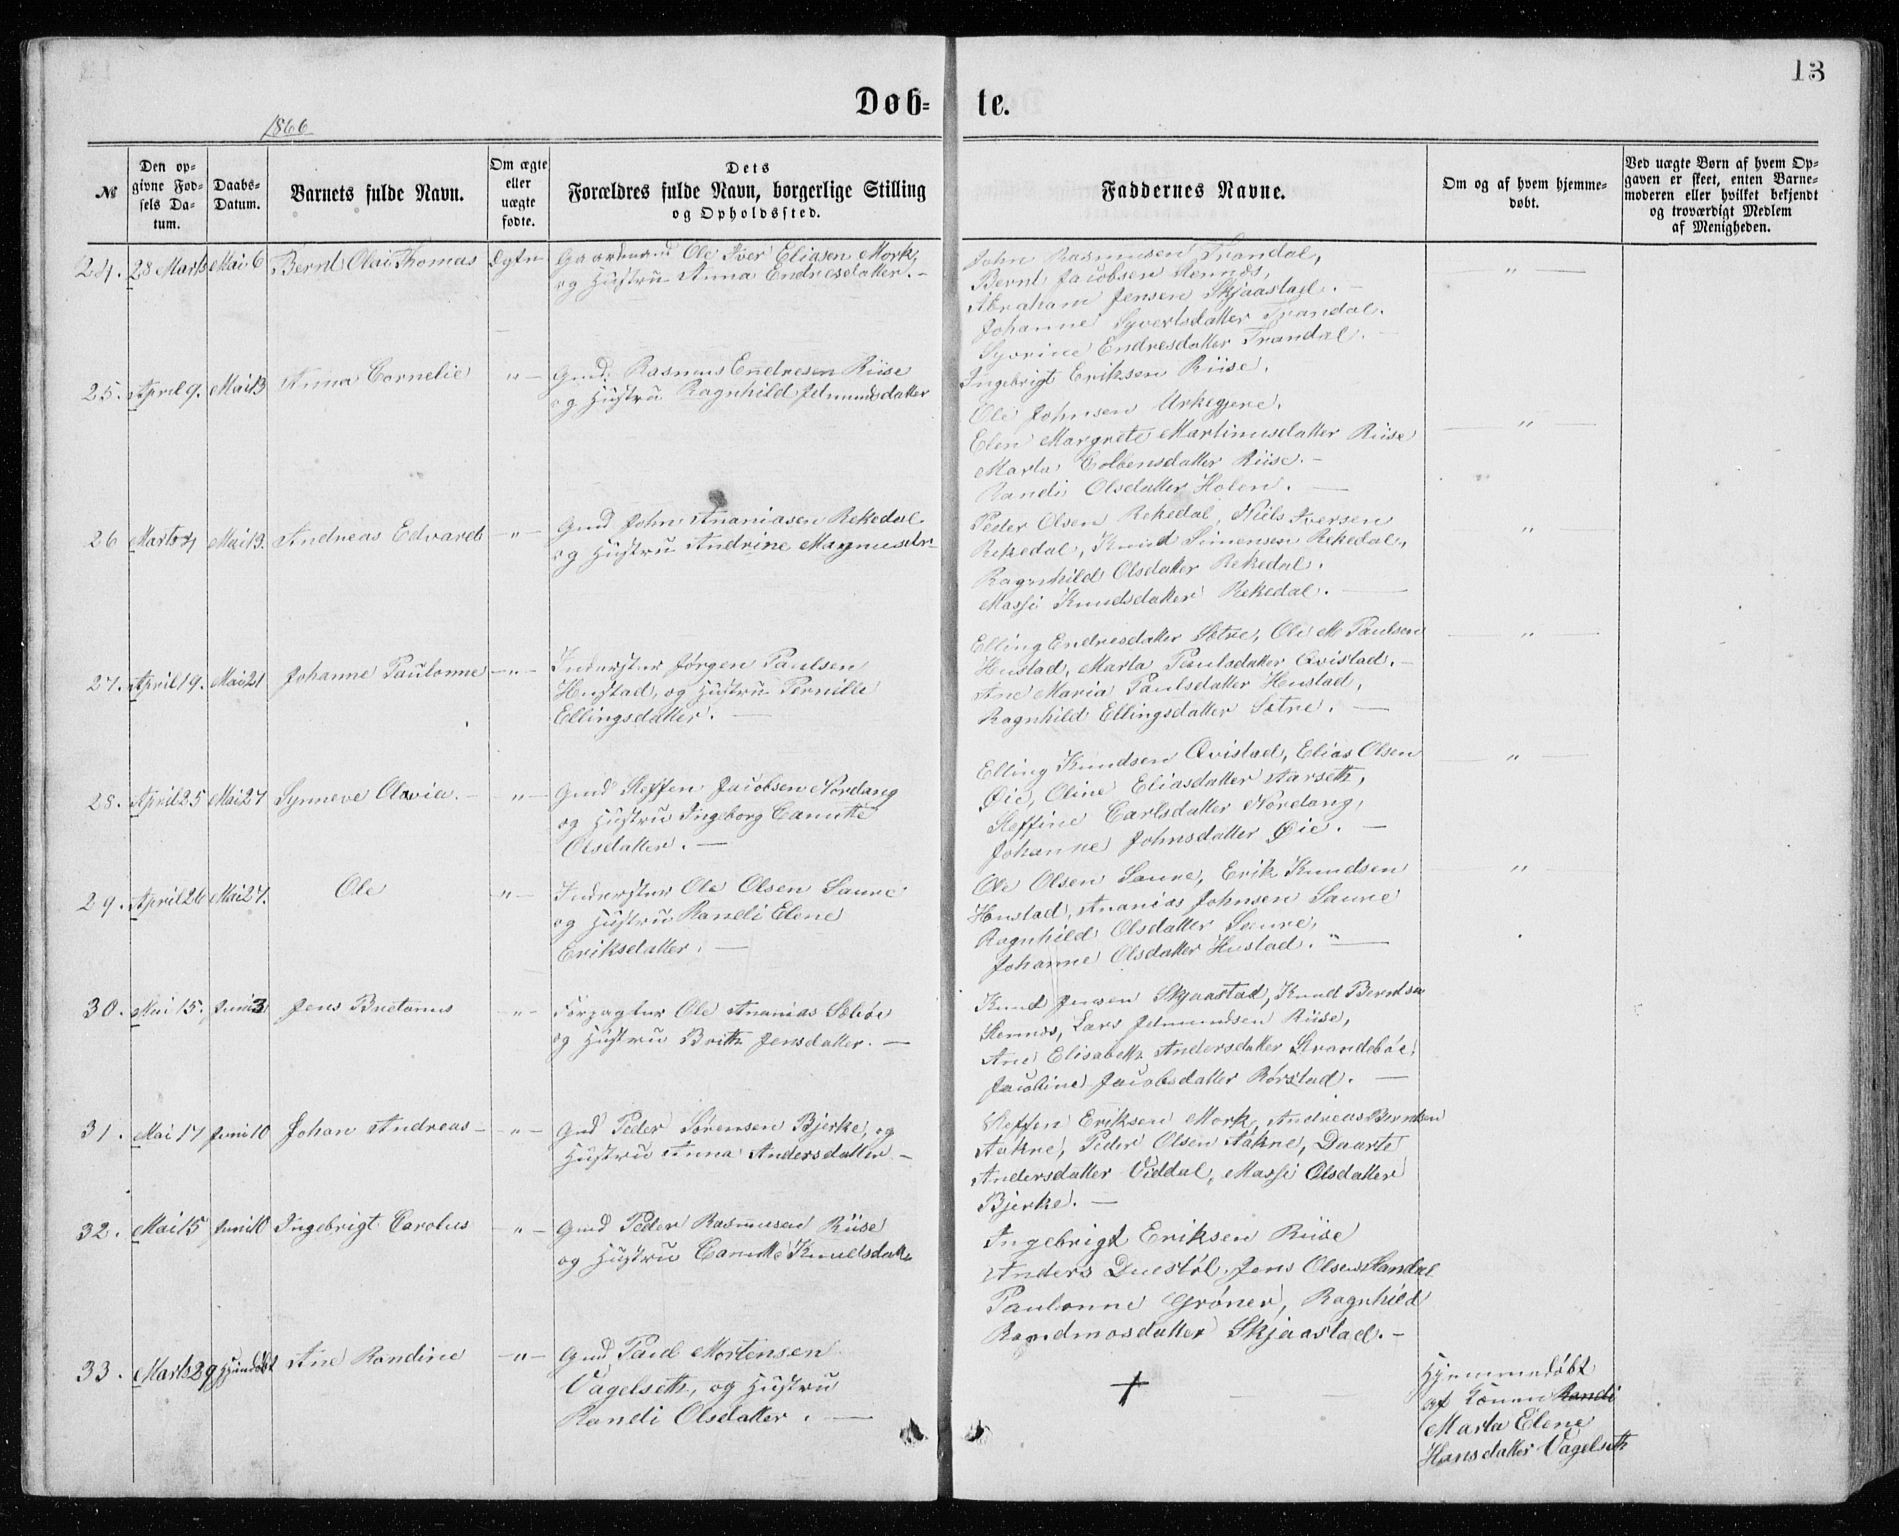 13
Døb-te.
1866
№
Den op-
givne Fød-
sels Da-
tum.
Daabs-
Datum.
Barnets fulde Navn.
Om ægte
eller
uægte
fødte.
Dets
Forældres fulde Navn, borgerlige Stilling
og Opholdssted.
Faddernes Navne.
Om og af hvem hjemme-
døbt.
Ved uægte Børn af hvem Op-
gaven er skeet, enten Barne-
moderen eller hvilket bekjendt
og troværdigt Medlem
af Menigheden.
24. 28 Marts Mai 6 Bernt Olai Thomas Ægte
Gaardmand Ole Iver Eliasen Mork,
og Hustru Anna Endresdatter. -
John Rasmusen Trandal,
Bernt Jacobsen Stennæs,
Abraham Jensen Skjaastad. -
Johanne Syvertsdatter Trandal.
Syvrine Endresdatter Trandal. -
"
25. April 9. Mai 13 Anna Cornelie " -
Gmd. Rasmus Endresen Riise
og Hustru Ragnhild Jetmundsdatter
Ingebrigt Eriksen Riise.
Ole Johnsen Urkegjere.
Elen Margrete Martinusdatter Riise
Marta Colbensdatter Riise. -
Randi Olsdatter Holen. -
"
26 Marts Mai 13. Andreas Edvard - " -
Gmd John Ananiasen Rekedal
og Hustru Andrine Magnusdtr
Peder Olsen Rekedal, Niels Iversen
Rekedal, Knud Simensen Rekedal,
Ragnhild Olsdatter Rekedal.
Massi Knudsdatter Rekedal. -
"
27. April 19. Mai 21 Johanne Paulonne - " -
Inderster Jørgen Paulsen
Hustad, og Hustru Pernille
Ellingsdatter. -
Elling Endresdatter Sætre, Ole M Paulsen
Hustad, Marta Paulsdatter Qvistad. -
Ane Maria Paulsdatter Hustad,
Ragnhild Ellingsdatter Sætre. -
"
28. April 25 Mai 27 Synneve Olavia. - " -
Gmd Steffen Jacobsen Nordang
og Hustru Ingeborg Canutte
Olsdatter. -
Elling Knudsen Qvistad, Elias Olsen
Øie, Oline Eliasdatter Aarseth,
Steffine Carlsdatter Nordang,
Johanne Johnsdatter Øie. -
"
29. April 26 Mai 27. Ole " -
Inderster Ole Olsen Saure
og Hustru Randi Elene
Eriksdatter. -
Ole Olsen Saure, Erik Knudsen
Hustad, Ananias Johnsen Saure
Ragnhild Olsdatter Saure,
Johanne Olsdatter Hustad. -
"
30. Mai 15. Juni 3 Jens - " -
Forpagter Ole Ananias Sæbøe
og Hustru Brith Jensdatter. -
Knud Jensen Skjaastad, Knud Berntsen
Stennæs, Lars Jetmundsen Riise,
Ane Elisabeth Andersdatter Strandebøe.
Jacobine Jacobsdatter Rørstad. -
31. Mai 17 Juni 10 Johan Andreas - - " -
Gmd Peder Sørensen Bjerke, og
Hustru Anna Andersdatter -
Steffen Eriksen Mork, Andreas Berntsen
Aakne, Peder Olsen Aakne, Daarte
Andersdatter Viddal, Massi Olsdatter
Bjerke. -
32. Mai 15 Juni 10 Ingebrigt Carolus " -
Gmd Peder Rasmusen Riise
og Hustru Canutte Knudsdatt
Ingebrigt Eriksen Riise
Anders Duestøl. Jens Olsen Standal
Paulonne Grøner, Ragnhild
Ragdmosdatter Skjaastad. -
33. Marts 29 Hjemdøbt Ane Randine - " -
Gmd Paul Mortensen
Vagelseth, og Hustru
Randi Olsdatter. -
+
Hjemmedøbt
af Konen Randi
Marta Elene
Hansdatter Vagelseth